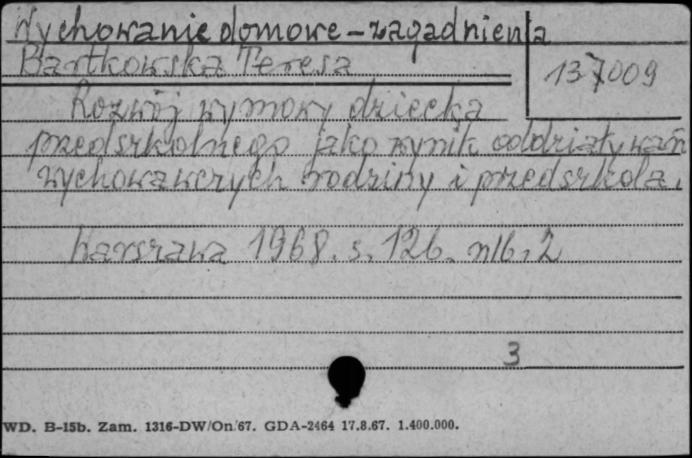 Wychowanie domowe - zagadnienia
Bartkowska Teresa
137009
Rozwój wymowy dziecka
przedszkolnego jako wynik oddziaływań
wychowawczych rodziny i przedszkola.
Warszawa 1968. s. 126. nlb. 2
3
WD. B-15b. Zam. 1316-DW/On/67. GDA-2464 17.8.67. 1.400.000.